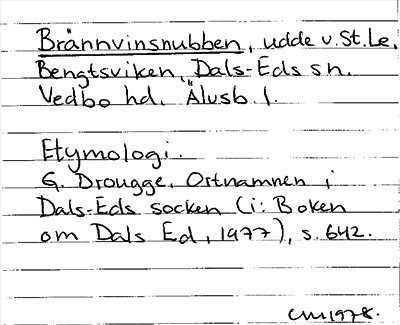 Brännvinsnubben, udde v. St. Le,
Bengtsviken, Dals-Eds sn.
Vedbo hd. Älvsb. l.
Etymologi.
G. Drougge, Ortnamnen i
Dals-Eds socken (i: Boken
om Dals Ed, 1977), s. 642.
1978.